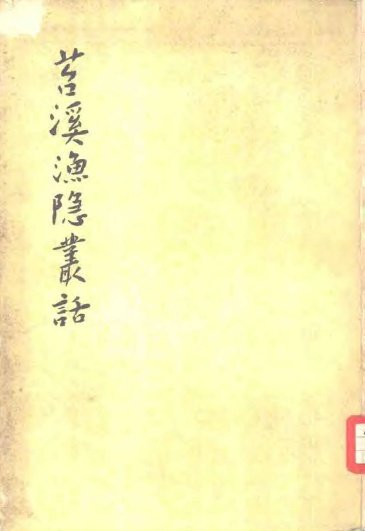 苕溪漁隱叢話